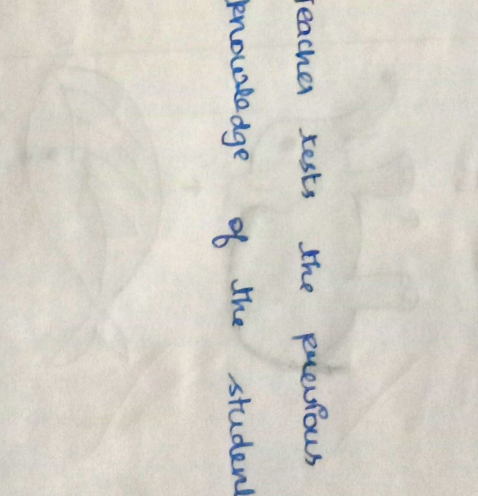 Teacher tests the previous
knowledge of the student